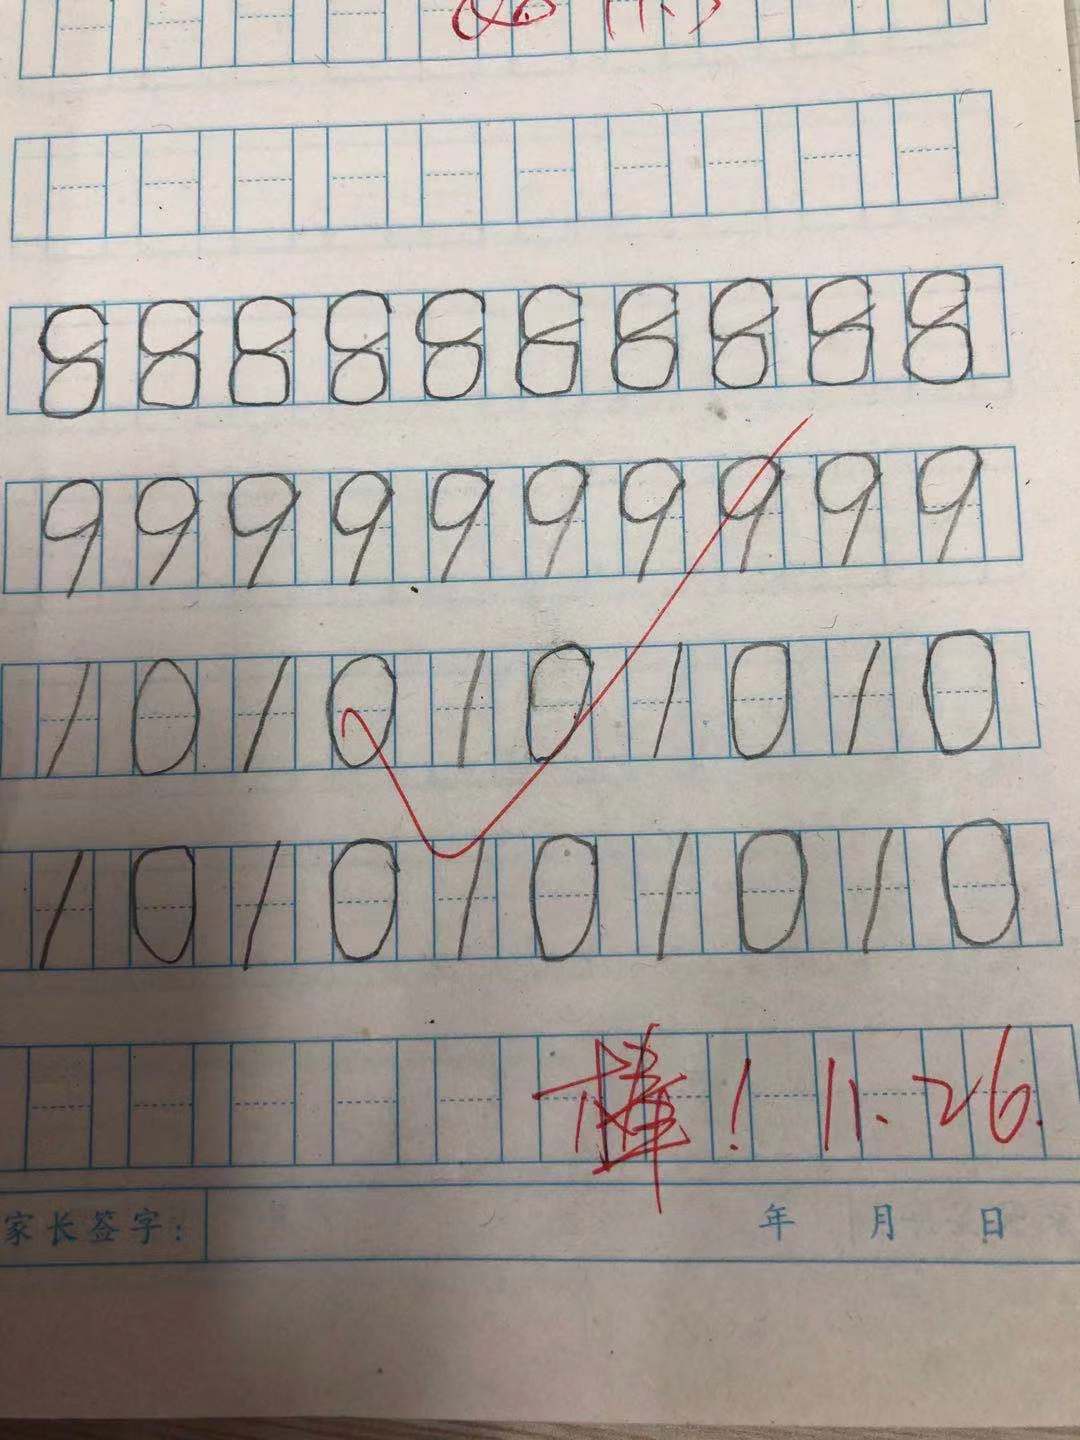 8 8 8 8 8 8 8 8 8 8
9 9 9 9 9 9 9 9 9 9
1 0 1 0 1 0 1 0 1 0
1 0 1 0 1 0 1 0 1 0
棒! 11.26.
家长签字: 年 月 日